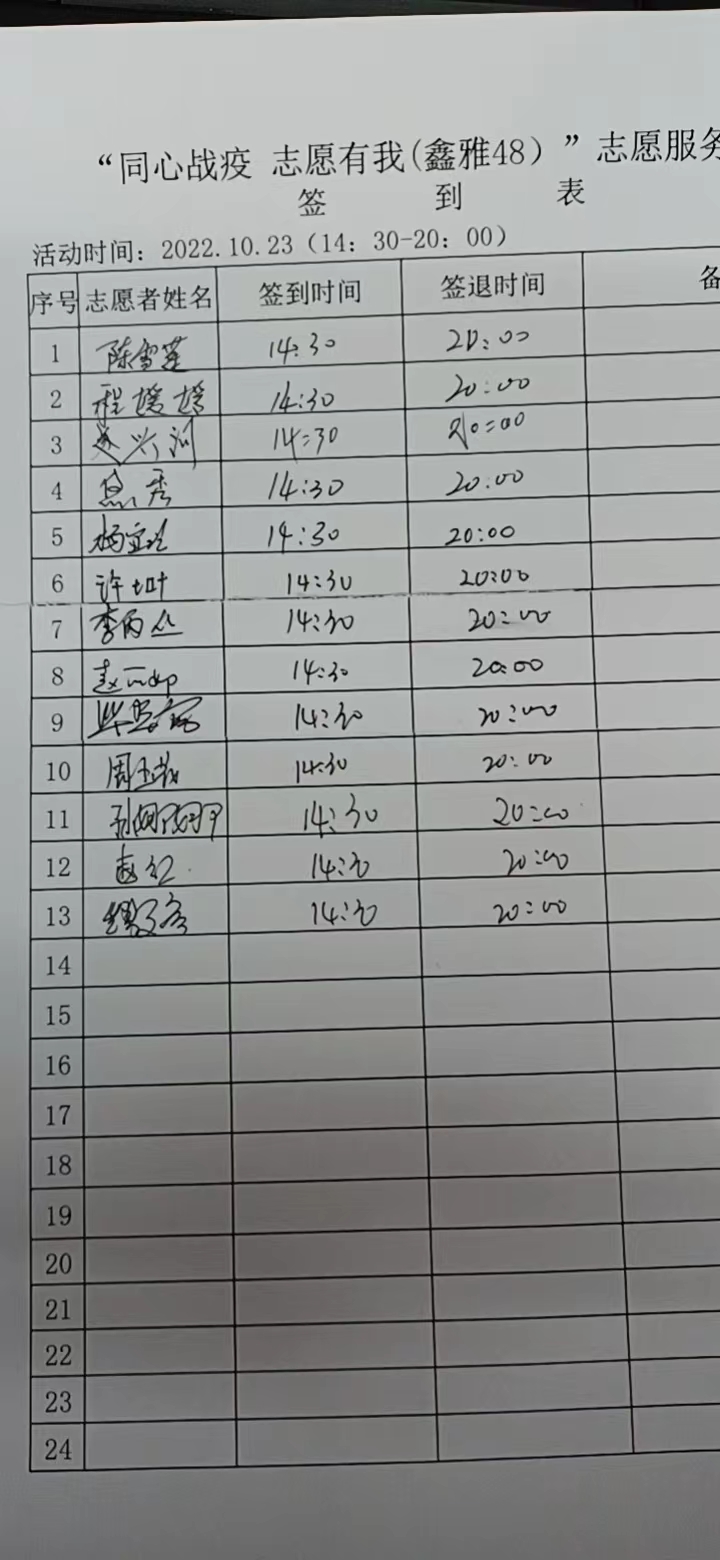 “同心战疫 志愿有我(鑫雅48）”志愿服务
签 到 表
活动时间：2022.10.23（14：30-20：00）
序号 志愿者姓名 签到时间 签退时间 备
1 陈雪莲 14:30 20:00
2 程媛媛 14:30 20:00
3 14:30 20:00
4 14:30 20:00
5 14:30 20:00
6 许叶 14:30 20:00
7 李丙 14:30 20:00
8 赵 14:30 20:00
9 14:30 20:00
10 周玉 14:30 20:00
11 14:30 20:00
12 赵红 14:30 20:00
13 14:30 20:00
14
15
16
17
18
19
20
21
22
23
24